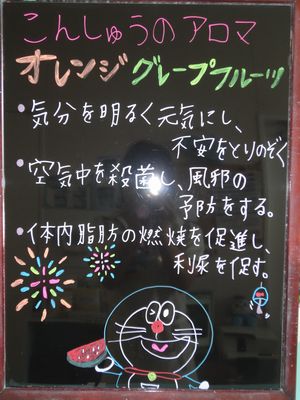 こんしゅうのアロマ
オレンジ グレープフルーツ
・気分を明るく元気にし、
不安をとりのぞく
・空気中を殺菌し、風邪の
予防をする。
・体内脂肪の燃焼を促進し、
利尿を促す。